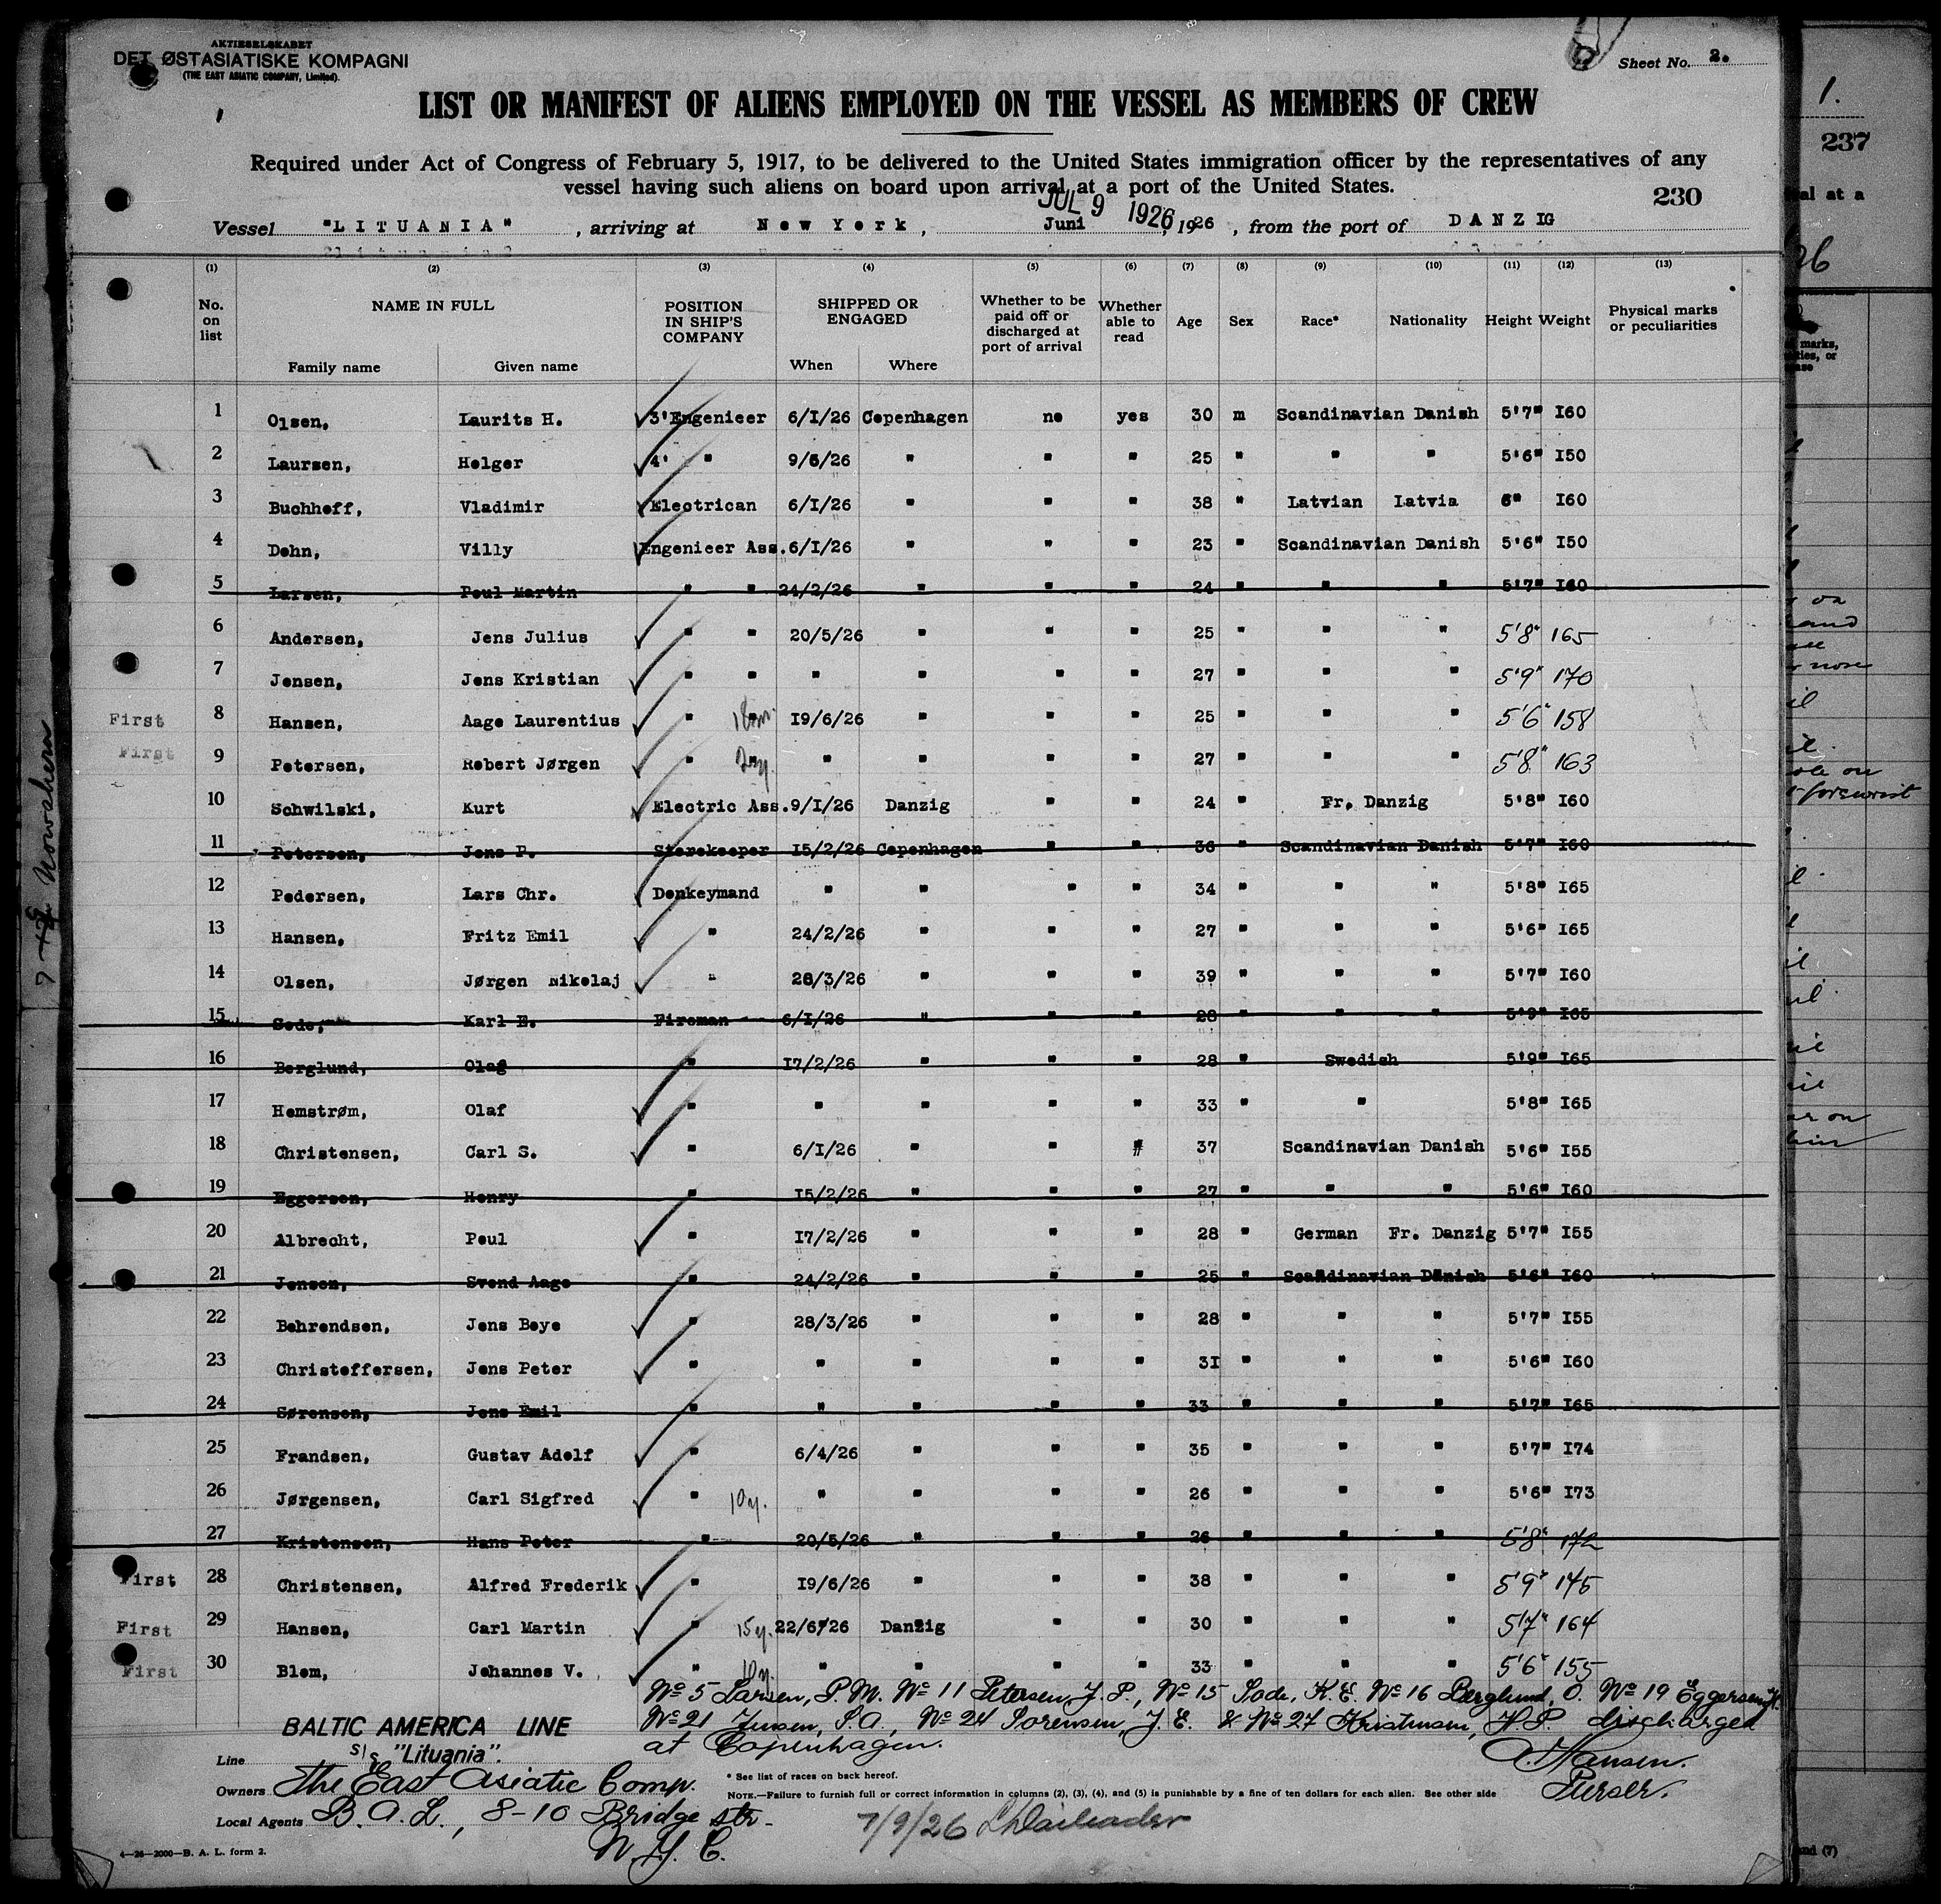 AKTIESELSKABET
DET ØSTASIATISKE KOMPAGNI
(THE EAST ASIATIC COMPANY, Limited).
Sheet No. 2.
LIST OR MANIFEST OF ALIENS EMPLOYED ON THE VESSEL AS MEMBERS OF CREW
Required under Act of Congress of February 5, 1917, to be delivered to the United States immigration officer by the representatives of any
vessel having such aliens on board upon arrival at a port of the United States.
230
JUL 9 1926
Vessel "LITUANIA", arriving at New York, Juni, 1926, from the port of DANZIG
(1) (2) (3) (4) (5) (6) (7) (8) (9) (10) (11) (12) (13)
No. on list NAME IN FULL Family name Given name POSITION IN SHIP'S COMPANY SHIPPED OR ENGAGED When Where Whether to be paid off or discharged at port of arrival Whether able to read Age Sex Race* Nationality Height Weight Physical marks or peculiarities
1 Olsen, Laurits H. 3'Engenieer 6/I/26 Copenhagen no yes 30 m Scandinavian Danish 5'7" I60
2 Laursen, Holger 4' " 9/6/26 " " " 25 " " " 5'6" I50
3 Buchhoff, Vladimir Electrican 6/I/26 " " " 38 " Latvian Latvia 6" I60
4 Dohn, Villy Engenieer Ass. 6/I/26 " " " 23 " Scandinavian Danish 5'6" I50
5 Larsen, Poul Martin " " 24/2/26 " " " 24 " " " 5'7" I60
6 Andersen, Jens Julius " " 20/5/26 " " " 25 " " " 5'8" 165
7 Jensen, Jens Kristian " " " " " " 27 " " " 5'9" 170
First 8 Hansen, Aage Laurentius " " 18m. 19/6/26 " " " 25 " " " 5'6" 158
First 9 Petersen, Robert Jørgen " " 2y. " " " " 27 " " " 5'8" 163
10 Schwilski, Kurt Electric Ass. 9/I/26 Danzig " " 24 " Fr. Danzig 5'8" I60
11 Petersen, Jens P. Storekeeper I5/2/26 Copenhagen " " 36 " Scandinavian Danish 5'7" I60
12 Pedersen, Lars Chr. Donkeymand " " " " 34 " " " 5'8" I65
13 Hansen, Fritz Emil " 24/2/26 " " " 27 " " " 5'6" I65
14 Olsen, Jørgen Nikolaj " 28/3/26 " " " 39 " " " 5'7" I60
15 Sode, Karl E. Fireman 6/I/26 " " " 28 " " " 5'9" I65
16 Berglund, Olaf " I7/2/26 " " " 28 " Swedish 5'9" I65
17 Hemstrøm, Olaf " " " " " 33 " " 5'8" I65
18 Christensen, Carl S. " 6/I/26 " " " 37 Scandinavian Danish 5'6" I55
19 Eggersen, Henry " I5/2/26 " " " 27 " " " 5'6" I60
20 Albrecht, Poul " I7/2/26 " " " 28 " German Fr. Danzig 5'7" I55
21 Jensen, Svend Aage " 24/2/26 " " " 25 " Scandinavian Danish 5'6" I60
22 Behrendsen, Jens Boye " 28/3/26 " " " 28 " " " 5'7" I55
23 Christoffersen, Jens Peter " " " " " 3I " " " 5'6" I60
24 Sørensen, Jens Emil " " " " " 33 " " " 5'7" I65
25 Frandsen, Gustav Adolf " 6/4/26 " " " 35 " " " 5'7" I74
26 Jørgensen, Carl Sigfred " 10y. " " " " 26 " " " 5'6" I73
27 Kristensen, Hans Peter " 20/5/26 " " " 26 " " " 5'8" 172
First 28 Christensen, Alfred Frederik " I9/6/26 " " " 38 " " " 5'9" 145
First 29 Hansen, Carl Martin " 15y. 22/6/26 Danzig " " 30 " " " 5'7" 164
First 30 Blom, Johannes V. " 10y. " " " " 33 " " " 5'6" 155
No 5 Larsen, P.M. No 11 Petersen, J.P., No 15 Sode, K.E. No 16 Berglund, O. No 19 Eggersen, H.
No 21 Jensen, S.A., No 24 Sorensen, J.E. & No 27 Kristensen, H.P. discharged
at Copenhagen.
A. Hansen.
Purser.
BALTIC AMERICA LINE
Line S/S "Lituania".
Owners The East Asiatic Comp.
Local Agents B.A.L., 8-10 Bridge str.
N.Y.C.
* See list of races on back hereof.
NOTE.—Failure to furnish full or correct information in columns (2), (3), (4), and (5) is punishable by a fine of ten dollars for each alien. See other side
7/9/26
4—26—2000—B. A. L. form 2.
1.
237
al at a
26
marks,
ties, or
on
and
nose
ole on
forewrist
ar on
and (7)